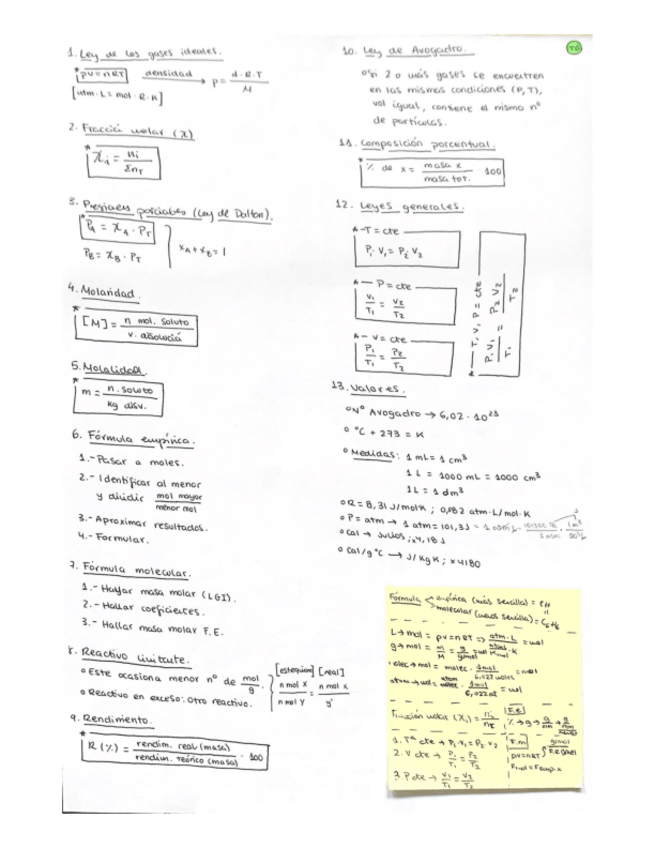 1. Ley de los gases ideales.
* PV = nRT densidad → P = d.R.T / M
[atm.L = mol.R.K]
2. Fracción molar (X)
* Xi = ni / ΣnT
3. Presiones parciales (Ley de Dalton).
* PA = XA . PT
PB = XB . PT
XA + XB = 1
4. Molaridad.
* [M] = n mol. soluto / V. disolución
5. Molalidad.
* m = n. soluto / Kg disv.
6. Fórmula empírica.
1.- Pasar a moles.
2.- Identificar al menor
y dividir mol mayor / menor mol
3.- Aproximar resultados.
4.- Formular.
7. Fórmula molecular.
1.- Hallar masa molar (LGI).
2.- Hallar coeficientes.
3.- Hallar masa molar F.E.
8. Reactivo limitante.
o Este ocasiona menor nº de mol / g.
o Reactivo en exceso: otro reactivo.
[estequiom] [real]
n mol X / n mol Y = n mol X / y'
9. Rendimiento.
* R (%) = rendim. real (masa) / rendim. teórico (masa) . 100
10. Ley de Avogadro.
o Si 2 o más gases se encuentren
en las mismas condiciones (P, T),
vol igual, contiene el mismo nº
de partículas.
11. Composición porcentual.
* % de x = masa x / masa tot. . 100
12. Leyes generales.
* - T = cte
P1 . V1 = P2 V2
* - P = cte
V1 / T1 = V2 / T2
* - V = cte
P1 / T1 = P2 / T2
* - T, V, P = cte
P1 V1 / T1 = P2 V2 / T2
13. Valores.
o Nº Avogadro → 6,02 . 10²³
o °C + 273 = K
o Medidas: 1 mL = 1 cm³
1 L = 1000 mL = 1000 cm³
1L = 1 dm³
o R = 8,31 J/molK ; 0,082 atm.L/mol.K
o P = atm → 1 atm = 101,3J
o Cal → Julios ; x4,18J
o Cal/g°C → J/KgK ; x4180
Fórmula empírica (más sencilla) = CH
molecular (menos sencilla) = C6H6
L → mol = PV = nRT => = mol
g → mol = m / M
= mol
Fracción molar (Xi) = ni / nT
F.E
1. Tª cte → P1.V1 = P2.V2
2. V cte → P1 / T1 = P2 / T2
3. P cte → V1 / T1 = V2 / T2
F.m
PV = nRT